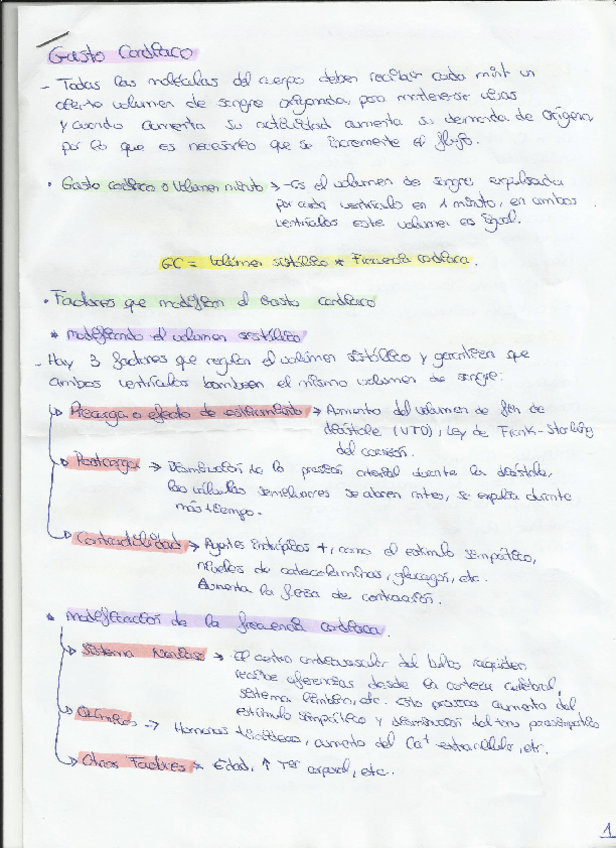 Gasto Cardíaco
- Todas las moléculas del cuerpo deben recibir cada mint un
cierto volumen de sangre oxigenada, para mantenerse vivas
y cuando aumenta su actividad aumenta su demanda de Oxígeno
por lo que es necesario que se incremente el flujo.
• Gasto cardíaco o Volumen minuto → - Es el volumen de sangre expulsada
por cada ventrículo en 1 minuto, en ambos
ventrículos este volumen es igual.
GC = Volúmen sistólico * Frecuencia cardíaca.
• Factores que modifican el Gasto cardíaco
* Modificando el volumen sistólico
- Hay 3 factores que regulan el volúmen sistólico y garantizan que
ambos ventrículos bombeen el mismo volumen de sangre:
→ Precarga o efecto de estiramiento → Aumento del volumen de fin de
diástole (VTD), Ley de Frank-Starling
del corazón.
→ Postcarga → Disminución de la presión arterial durante la diástole,
las válvulas semilunares se abren antes, se expulsa durante
más tiempo.
→ Contractilidad → Agentes inotrópicos +, como el estímulo simpático,
niveles de catecolaminas, glucagón, etc.
Aumenta la fuerza de contracción.
* Modificación de la frecuencia cardíaca.
→ Sistema Nervioso → El centro cardiovascular del bulbo raquídeo
recibe aferencias desde la corteza cerebral,
sistema límbico, etc. Esto provoca aumento del
estímulo simpático y disminución del tono parasimpático
→ Químicos → Hormonas tiroideas, aumento del Ca⁺ extracelular, etc.
→ Otros Factores → Edad, ↑ Tª corporal, etc.
1